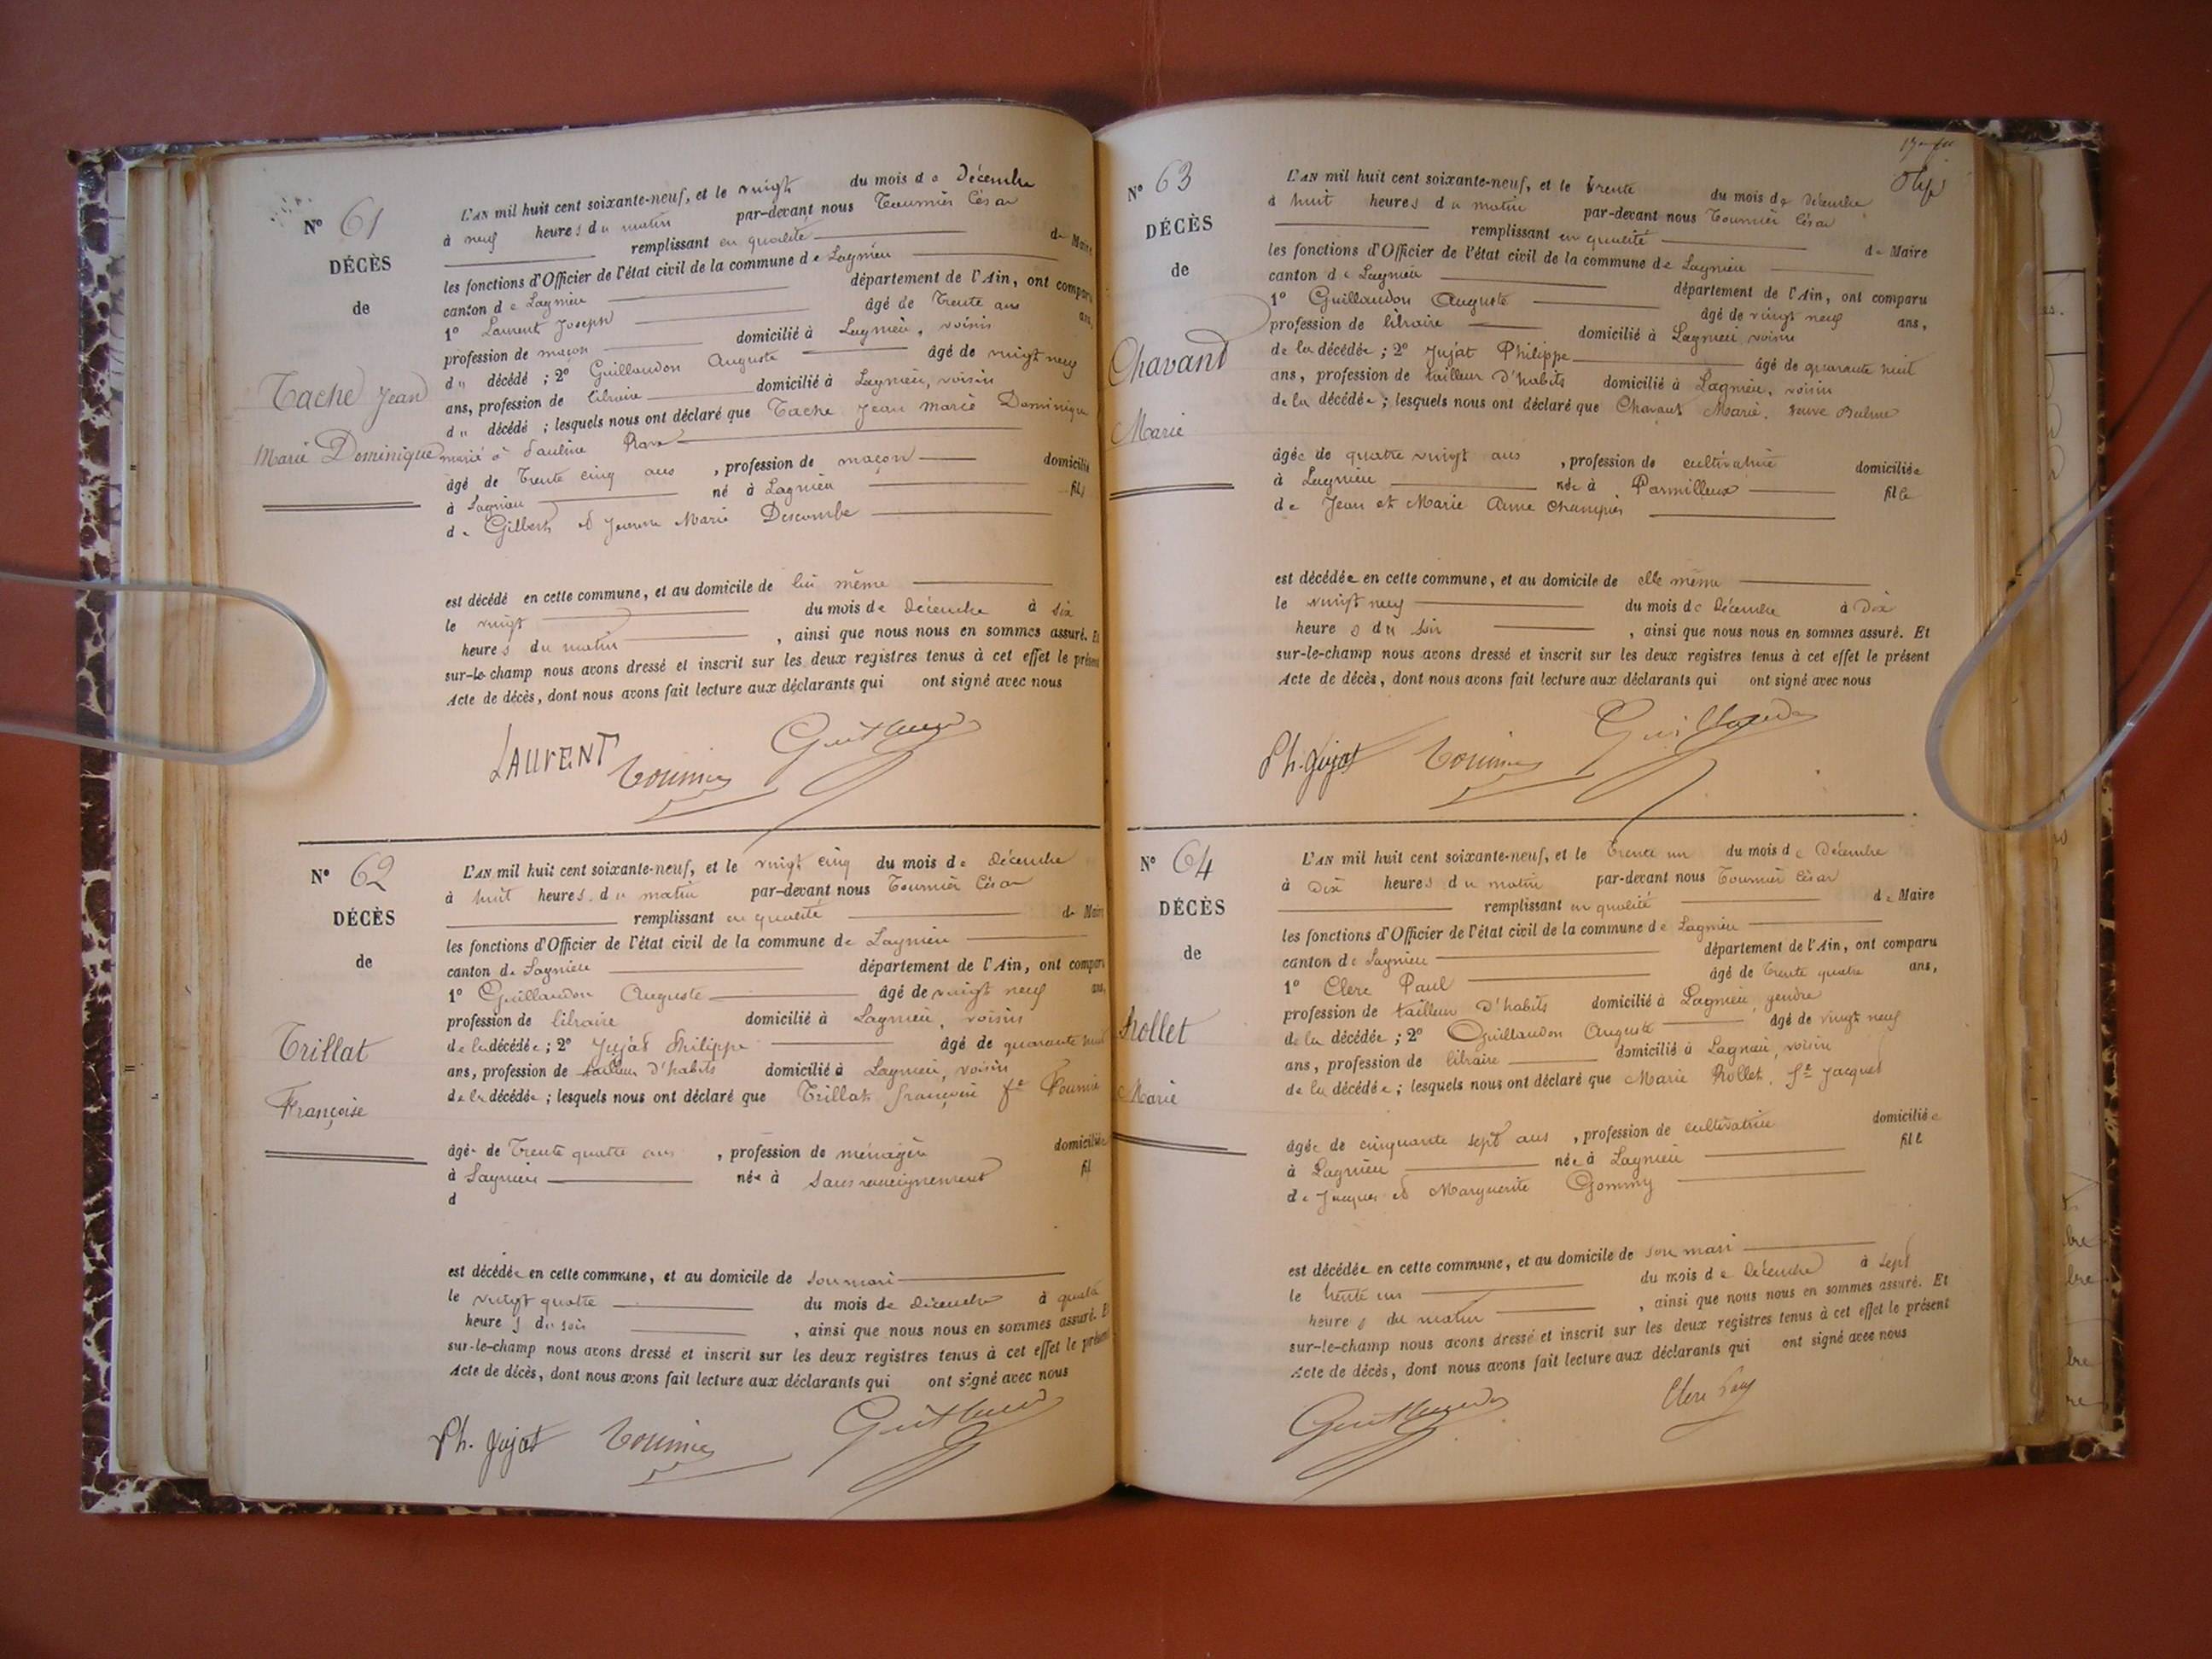 N° 61
DÉCÈS
de
Tache Jean
Marie Dominique
L'AN mil huit cent soixante-neuf, et le vingt du mois de Décembre
à neuf heures du matin par-devant nous Tournier César
remplissant en qualité de Maire
les fonctions d'Officier de l'état civil de la commune de Lagnieu
canton de Lagnieu département de l'Ain, ont comparu
1° Laurent Joseph âgé de Trente ans ans,
profession de maçon domicilié à Lagnieu, voisin
du décédé ; 2° Guillaudon Auguste âgé de vingt neuf
ans, profession de libraire domicilié à Lagnieu, voisin
du décédé ; lesquels nous ont déclaré que Tache Jean Marie Dominique
marié à Pauline
âgé de Trente cinq ans , profession de maçon domicilié
à Lagnieu né à Lagnieu fils
de Gilbert et Jeanne Marie Descombe
est décédé en cette commune, et au domicile de lui même
le vingt du mois de Décembre à six
heures du matin , ainsi que nous nous en sommes assuré. Et
sur-le-champ nous avons dressé et inscrit sur les deux registres tenus à cet effet le présent
Acte de décès, dont nous avons fait lecture aux déclarants qui ont signé avec nous
LAURENT Tournier Guillaudon
N° 62
DÉCÈS
de
Trillat
Françoise
L'AN mil huit cent soixante-neuf, et le vingt cinq du mois de Décembre
à huit heures du matin par-devant nous Tournier César
remplissant en qualité de Maire
les fonctions d'Officier de l'état civil de la commune de Lagnieu
canton de Lagnieu département de l'Ain, ont comparu
1° Guillaudon Auguste âgé de vingt neuf ans,
profession de libraire domicilié à Lagnieu, voisin
de la décédée ; 2° Jujat Philippe âgé de quarante huit
ans, profession de tailleur d'habits domicilié à Lagnieu, voisin
de la décédée ; lesquels nous ont déclaré que Trillat Françoise fe Fournier
âgée de Trente quatre ans , profession de ménagère domiciliée
à Lagnieu née à sans renseignement fil
d
est décédée en cette commune, et au domicile de son mari
le vingt quatre du mois de décembre à quatre
heures du soir , ainsi que nous nous en sommes assuré. Et
sur-le-champ nous avons dressé et inscrit sur les deux registres tenus à cet effet le présent
Acte de décès, dont nous avons fait lecture aux déclarants qui ont signé avec nous
Ph. Jujat Tournier Guillaudon
N° 63
DÉCÈS
de
Chavant
Marie
L'AN mil huit cent soixante-neuf, et le trente du mois de décembre
à huit heures du matin par-devant nous Tournier César
remplissant en qualité de Maire
les fonctions d'Officier de l'état civil de la commune de Lagnieu
canton de Lagnieu département de l'Ain, ont comparu
1° Guillaudon Auguste âgé de vingt neuf ans,
profession de libraire domicilié à Lagnieu voisin
de la décédée ; 2° Jujat Philippe âgé de quarante huit
ans, profession de tailleur d'habits domicilié à Lagnieu, voisin
de la décédée ; lesquels nous ont déclaré que Chavant Marie, veuve
âgée de quatre vingt ans , profession de cultivatrice domiciliée
à Lagnieu née à Parmilleux fille
de Jean et Marie Anne
est décédée en cette commune, et au domicile de elle même
le vingt neuf du mois de Décembre à Dix
heures du soir , ainsi que nous nous en sommes assuré. Et
sur-le-champ nous avons dressé et inscrit sur les deux registres tenus à cet effet le présent
Acte de décès, dont nous avons fait lecture aux déclarants qui ont signé avec nous
Ph. Jujat Tournier Guillaudon
N° 64
DÉCÈS
de
Rollet
Marie
L'AN mil huit cent soixante-neuf, et le Trente un du mois de Décembre
à Dix heures du matin par-devant nous Tournier César
remplissant en qualité de Maire
les fonctions d'Officier de l'état civil de la commune de Lagnieu
canton de Lagnieu département de l'Ain, ont comparu
1° Clerc Paul âgé de trente quatre ans,
profession de tailleur d'habits domicilié à Lagnieu, gendre
de la décédée ; 2° Guillaudon Auguste âgé de vingt neuf
ans, profession de libraire domicilié à Lagnieu, voisin
de la décédée ; lesquels nous ont déclaré que Marie Rollet, fe Jacquet
âgée de cinquante sept ans , profession de cultivatrice domiciliée
à Lagnieu née à Lagnieu fille
de Jacques et Marguerite Gommy
est décédée en cette commune, et au domicile de son mari
le trente un du mois de Décembre à sept
heures du matin , ainsi que nous nous en sommes assuré. Et
sur-le-champ nous avons dressé et inscrit sur les deux registres tenus à cet effet le présent
Acte de décès, dont nous avons fait lecture aux déclarants qui ont signé avec nous
Guillaudon Clerc Paul